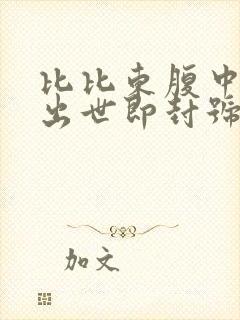 比比东腹中
出世即封號
加文